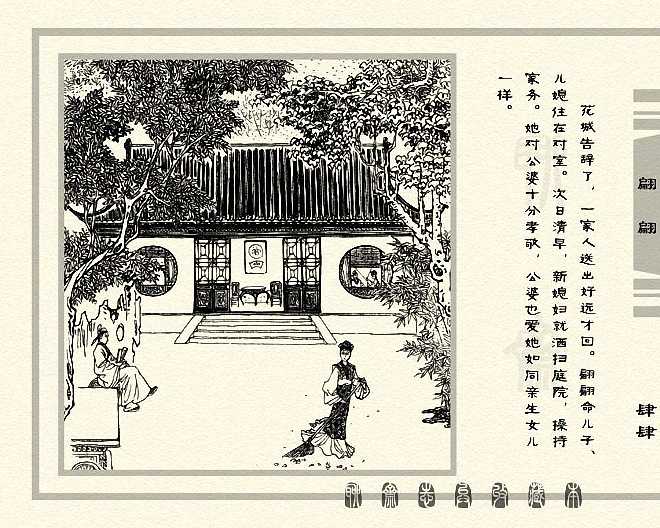 翩翩
肆肆
花城告辞了，一家人送出好远才回。翩翩命儿子、
儿媳住在对室。次日清早，新媳妇就洒扫庭院，操持
家务。她对公婆十分孝敬，公婆也爱她如同亲生女儿
一样。